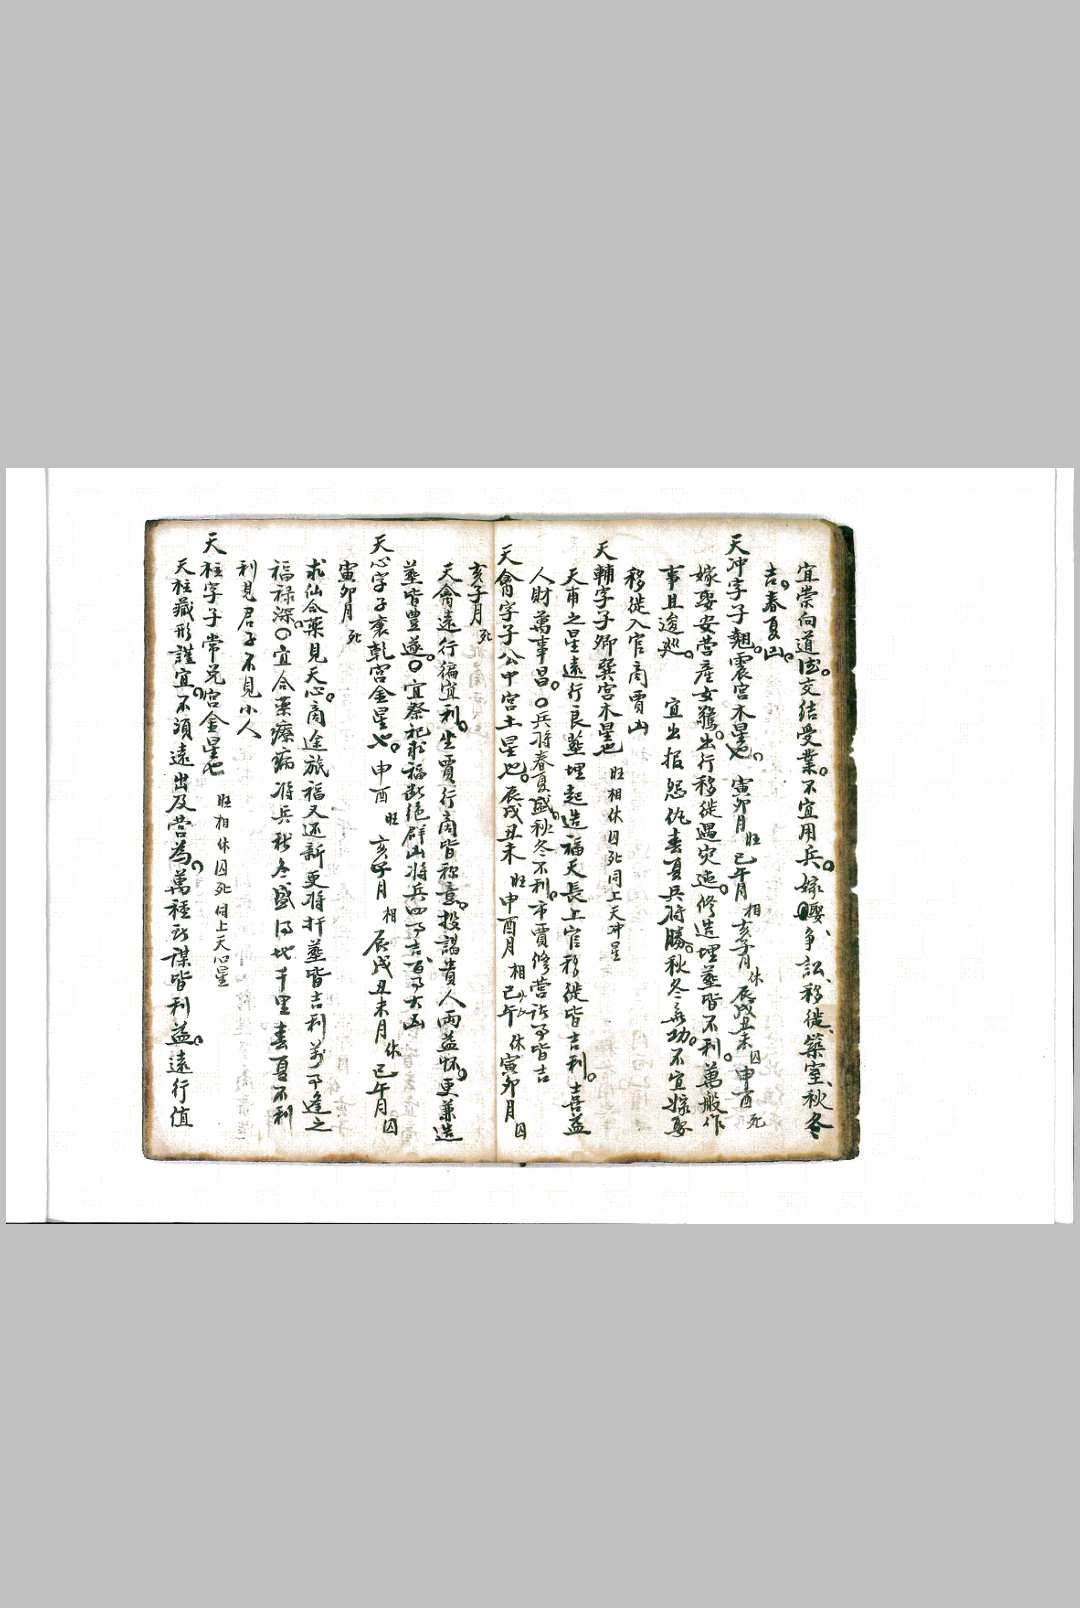 宜崇向道德。交結受業。不宜用兵。嫁娶、争訟、移徙、築室、秋冬
吉。春夏凶。
天冲字子翹。震宫木星也。寅卯月旺巳午月相亥子月休辰戌丑未囚申酉死
嫁娶安营産女驚。出行移徙遇灾迍。修造埋葬皆不利。萬般作
事且逡巡。 宜出报怨仇春夏兵将勝。秋冬無功。不宜嫁娶
移徙入官商賈凶
天輔字子卿巽宫木星也 旺相休囚死同上天冲星
天甫之星遠行良葬埋起造福天長上官移徙皆吉利。喜益
人財萬事昌。〇兵將春夏盛。秋冬不利。市賈修营諸事皆吉
天禽字子公中宫土星也。辰戌丑未旺申酉月相巳午休寅卯月囚
亥子月死
天禽遠行偏宜利。坐賈行商皆称意。投謁貴人両益怀。更兼造
葬皆豊遂。〇宜祭祀求福断絶群凶将兵四时吉百事大凶
天心字子襄乾宫金星也。申酉旺亥子月相辰戌丑未月休巳午月囚
寅卯月死
求仙合藥見天心。商途旅福又还新更将扦葬皆吉利萬事逢之
福禄深。〇宜合藥療病将兵秋冬盛得地千里春夏不利
利見君子不見小人
天柱字子常兑宫金星也 旺相休囚死同上天心星
天柱藏形謹宜。不須遠出及营為。萬種所謀皆利益。遠行值